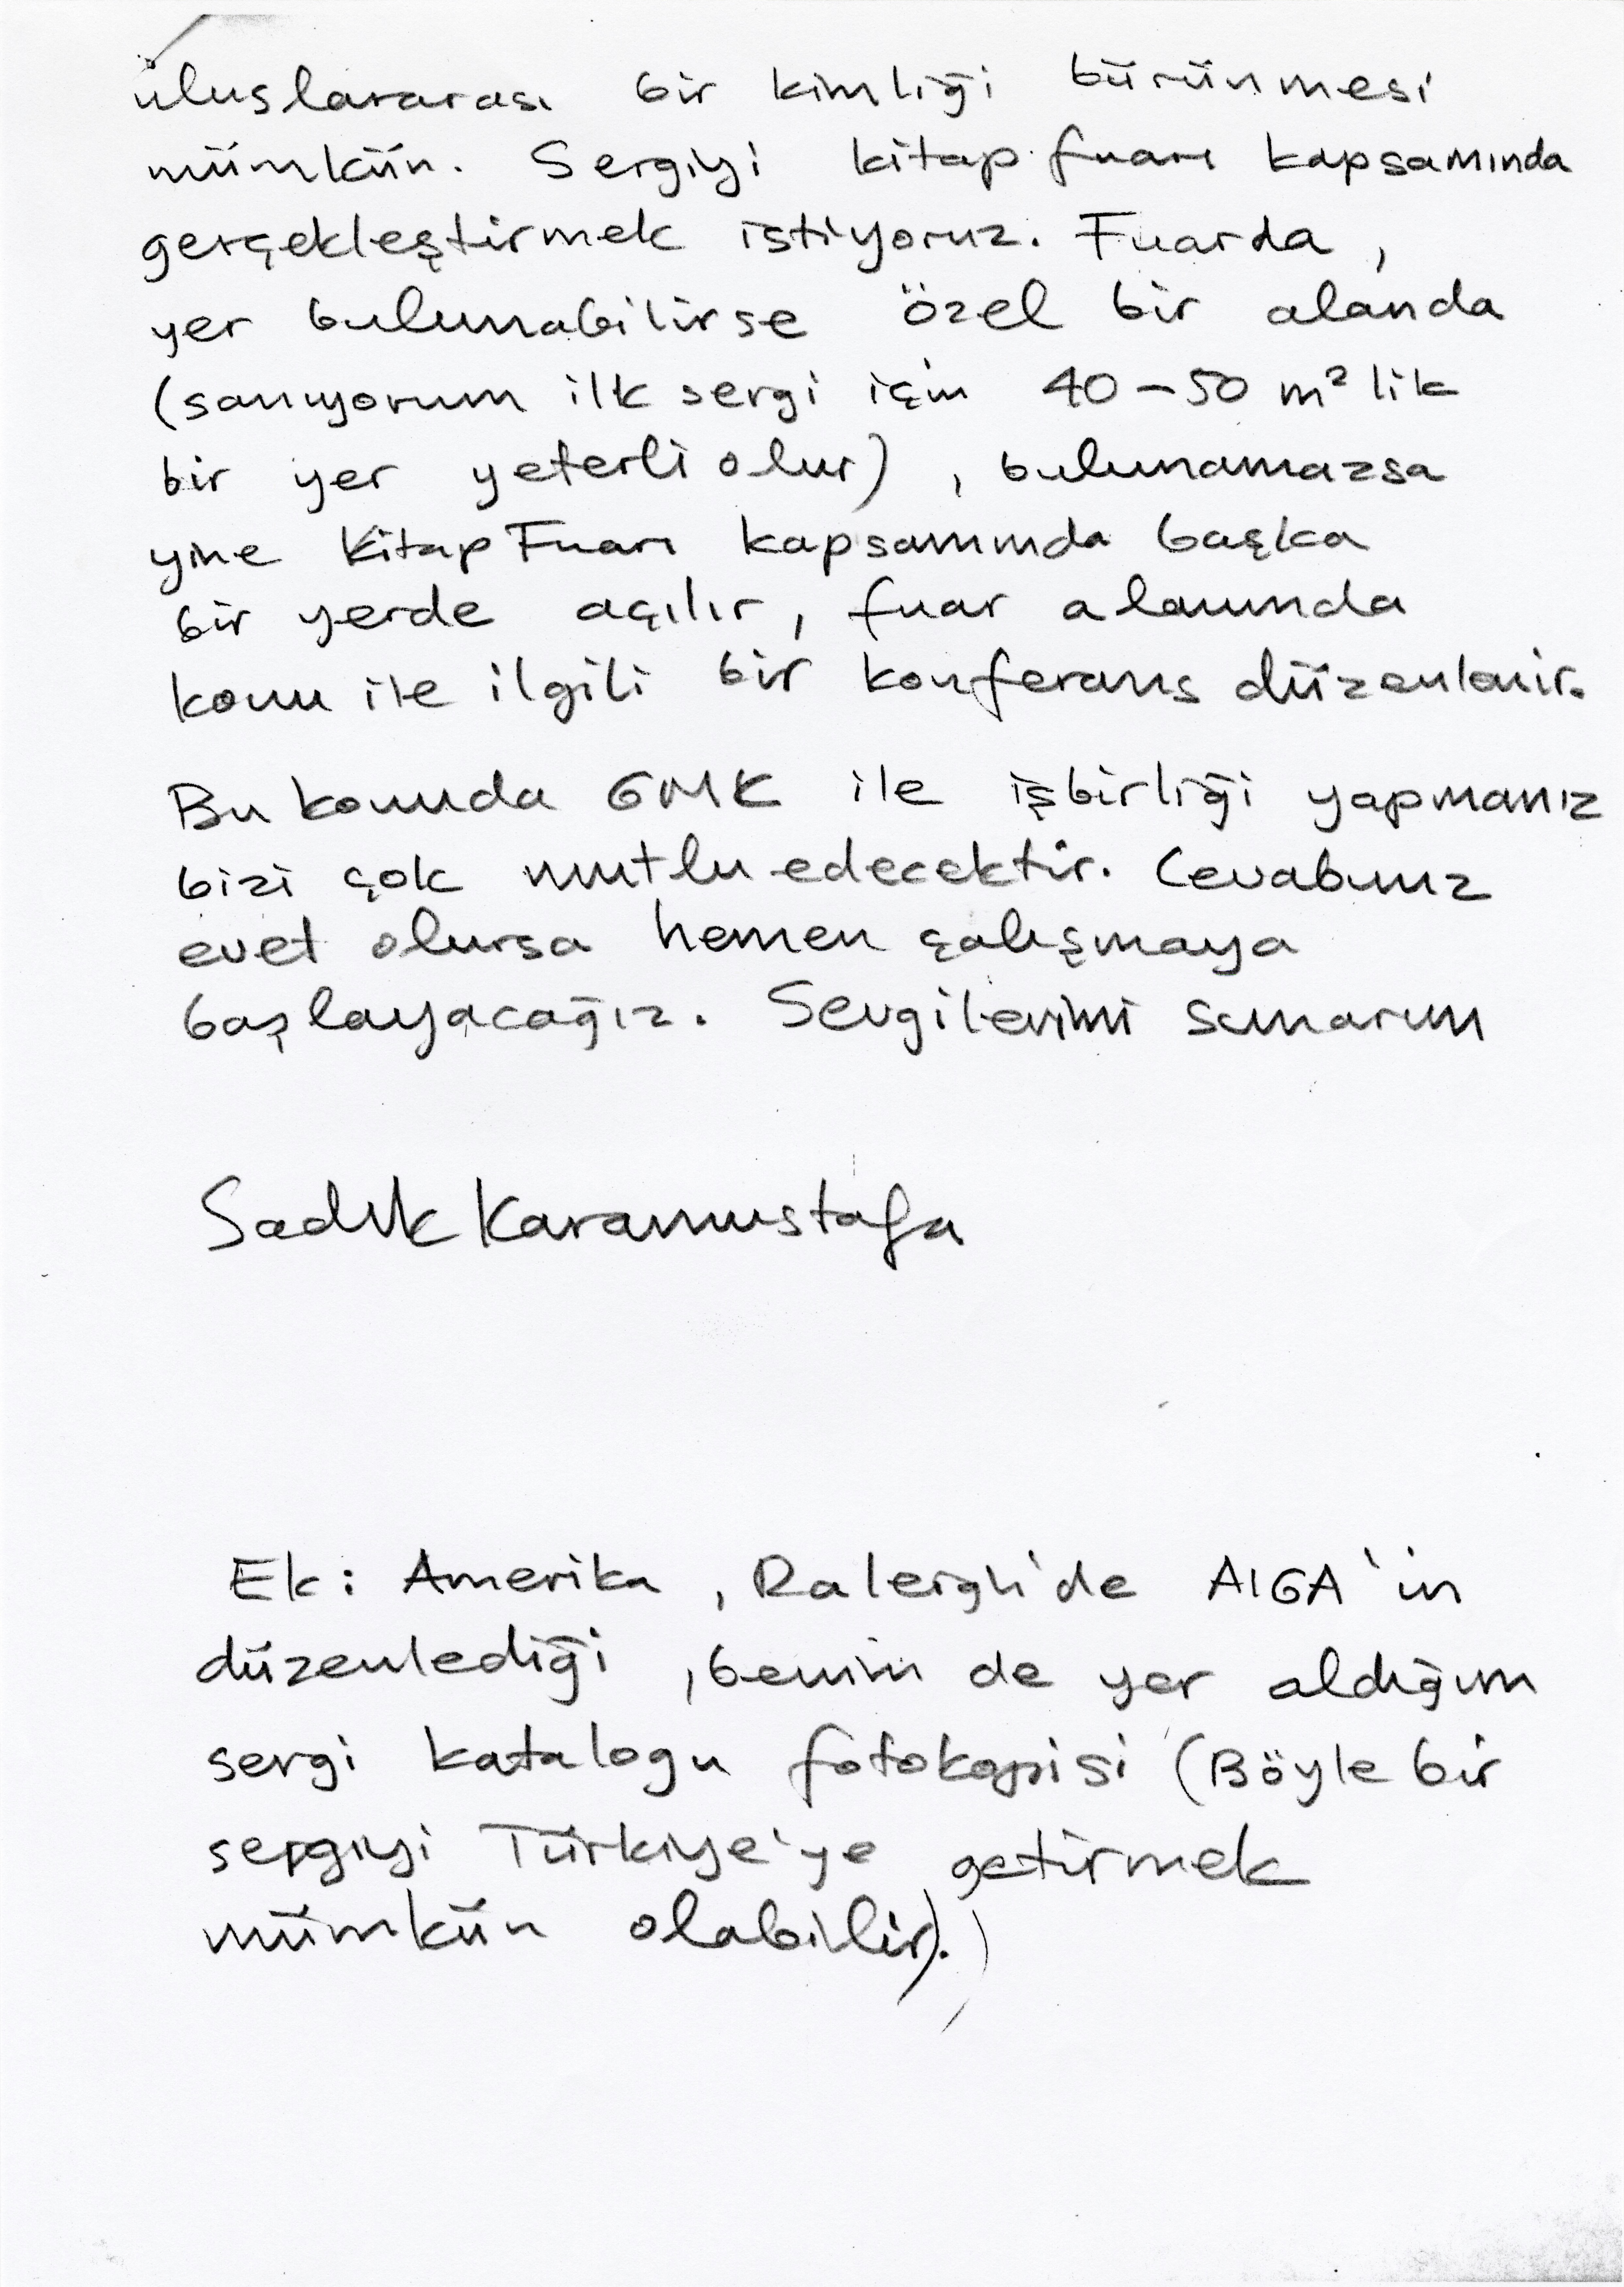 uluslararası bir kimliği bürünmesi
mümkün. Sergiyi kitap fuarı kapsamında
gerçekleştirmek istiyoruz. Fuarda,
yer bulunabilirse özel bir alanda
(sanıyorum ilk sergi için 40-50 m² lik
bir yer yeterli olur), bulunamazsa
yine Kitap Fuarı kapsamında başka
bir yerde açılır, fuar alanında
konu ile ilgili bir konferans düzenlenir.
Bu konuda GMK ile işbirliği yapmanız
bizi çok mutlu edecektir. Cevabınız
evet olursa hemen çalışmaya
başlayacağız. Sevgilerimi sunarım
Sadık Karamustafa
Ek: Amerika, Raleigh'de AIGA'in
düzenlediği, benim de yer aldığım
sergi katalogu fotokopisi (Böyle bir
sergiyi Türkiye'ye getirmek
mümkün olabilir).)